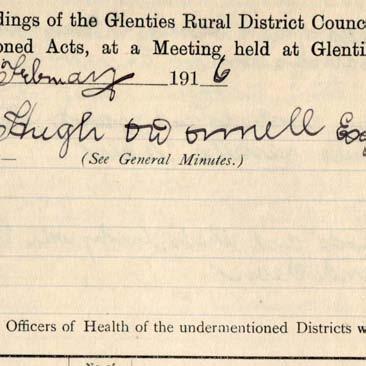 dings of the Glenties Rural District Counc
oned Acts, at a Meeting held at Glenti
February 1916
Hugh O'Donnell Esq
(See General Minutes.)
Officers of Health of the undermentioned Districts w